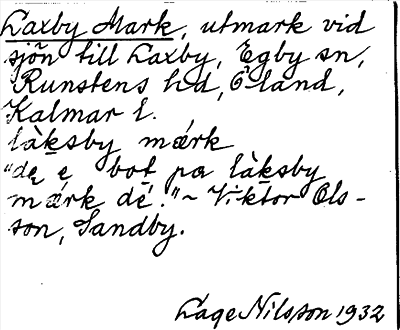 Laxby Mark, utmark vid
sjön till Laxby, Egby sn,
Runstens hd, Öland,
Kalmar l.
làksby mǽrk
"dę e bot pa làksby
mǽrk dé." ~ Viktor Ols-
son, Sandby.
Lage Nilsson 1932